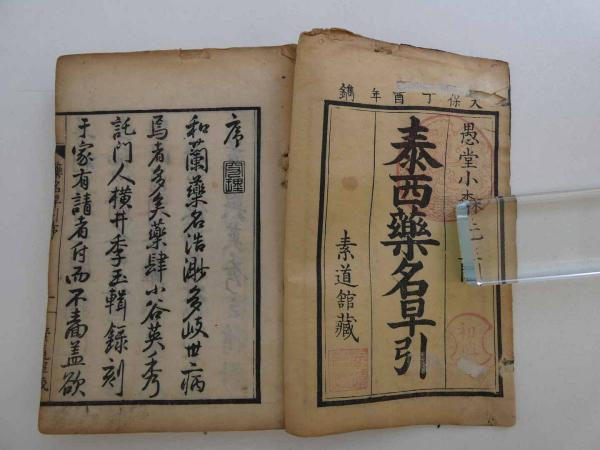 天保丁酉年鐫
愚堂小森
泰西藥名早引
素道館藏
初
序
和蘭藥名浩渺多岐世病
焉者多矣藥肆小谷英秀
託門人横井季玉輯録刻
于家有請者付而不啚盖欲
藥名早引序